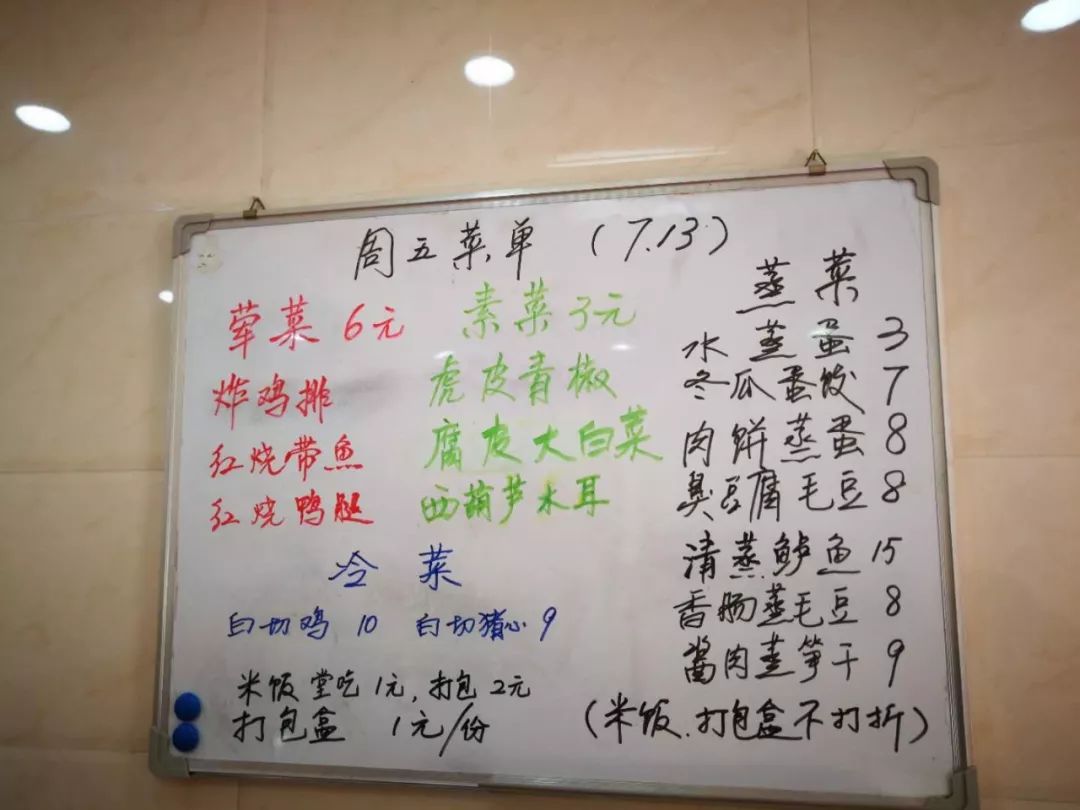 周五菜单（7.13）
荤菜 6元
炸鸡排
红烧带魚
红烧鸭腿
素菜 3元
虎皮青椒
腐皮大白菜
西葫芦木耳
冷菜
白切鸡 10 白切猪心 9
米饭 堂吃 1元，打包 2元
打包盒 1元/份
蒸菜
水蒸蛋 3
冬瓜蛋饺 7
肉饼蒸蛋 8
臭豆腐毛豆 8
清蒸鲈鱼 15
香肠蒸毛豆 8
酱肉蒸笋干 9
（米饭.打包盒不打折）